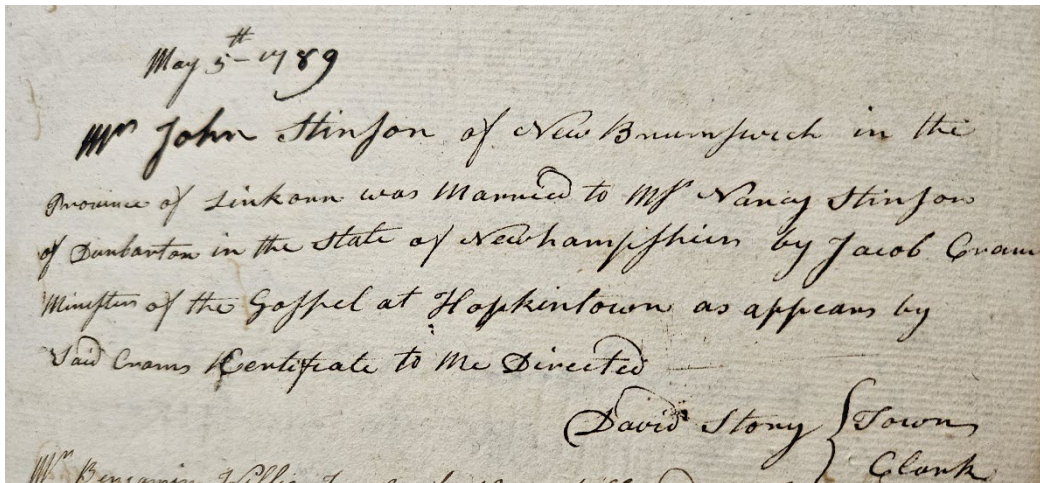 May 5th 1789
Mr John Stinson of New Brumswick in the
Province of Linkorn was Married to Ms Nancy Stinson
of Dunbarton in the State of Newhampshier by Jacob Cram
Minister of the Gospel at Hopkintown as appears by
Said Crams Certificate to Me Directed
David Story Town
Clark
Mr Benjamin